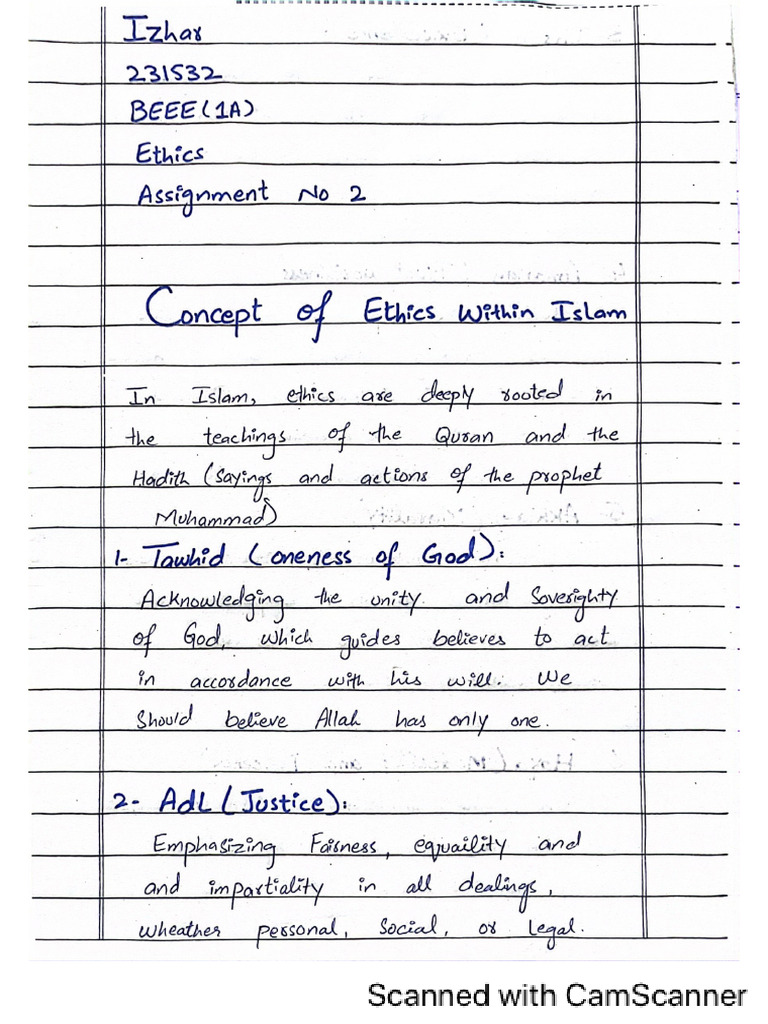 Izhar
231532
BEEE(1A)
Ethics
Assignment No 2
Concept of Ethics Within Islam
In Islam, ethics are deeply rooted in
the teachings of the Quran and the
Hadith (Sayings and actions of the prophet
Muhammad)
1- Tawhid (oneness of God):
Acknowledging the unity and Soverighty
of God, which guides believes to act
in accordance with his will. We
Should believe Allah has only one.
2- Adl (Justice):
Emphasizing Fairness, equaility and
and impartiality in all dealings,
wheather personal, Social, or Legal.
Scanned with CamScanner